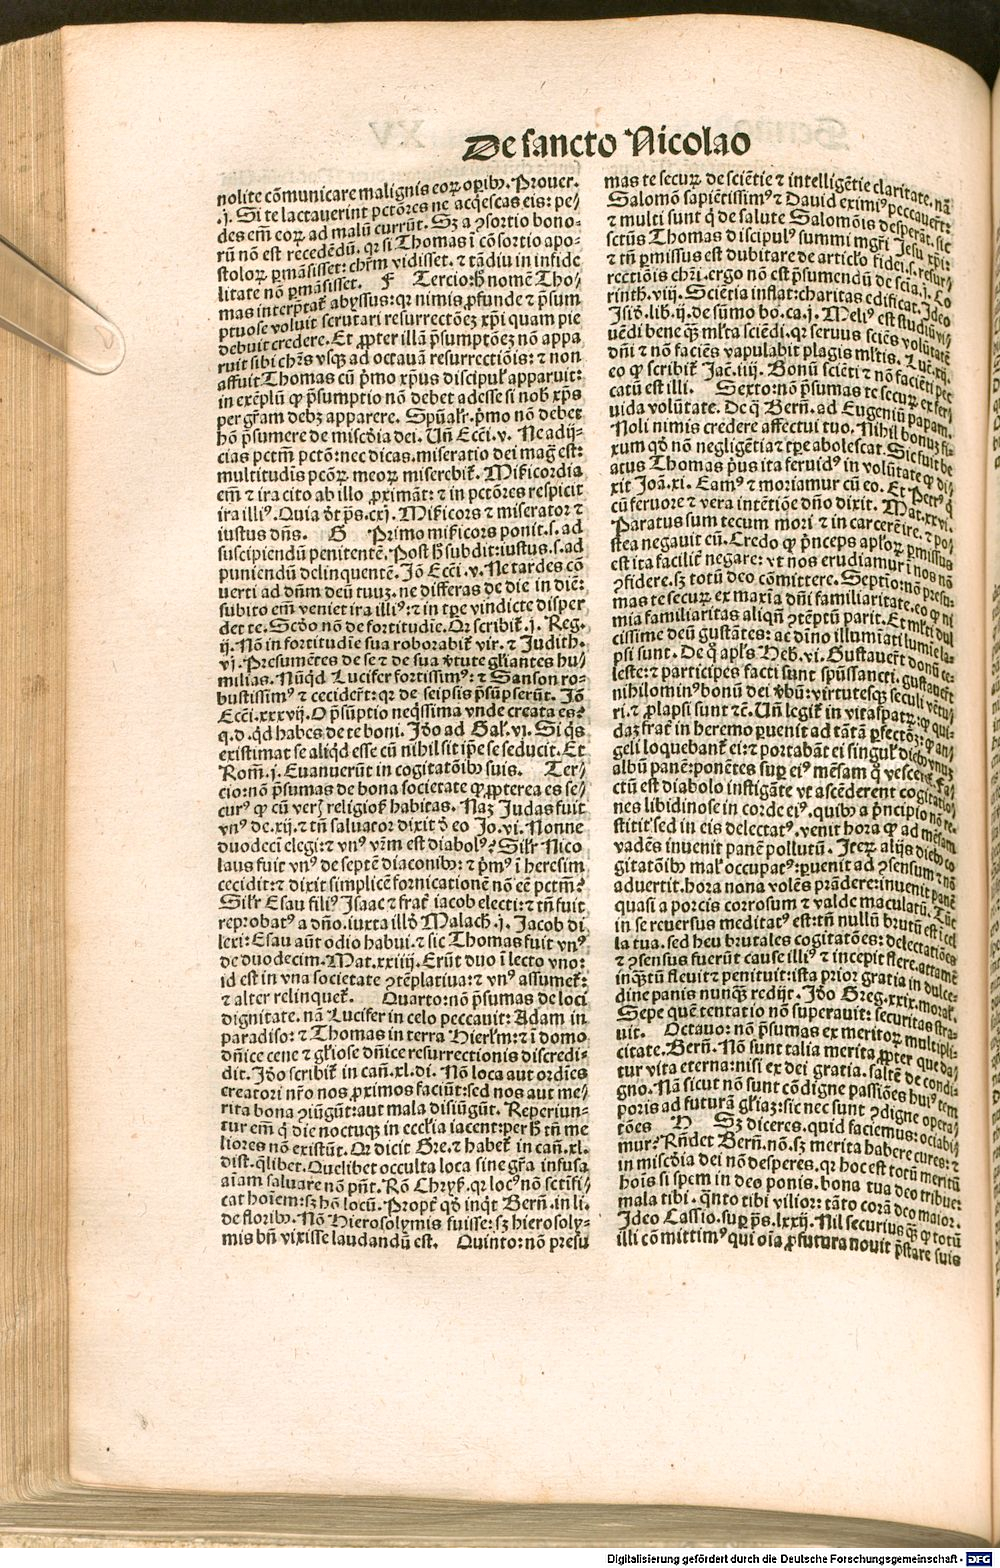 De sancto Nicolao
nolite cõmunicare malignis eoꝝ opibꝫ. Prouer.
.j. Si te lactauerint pctõres ne acq̃escas eis: pe⸗
des em̃ eoꝝ ad malũ currũt. Sꝫ a ꝯsortio bono⸗
rũ nõ est recedẽdũ. qꝛ si Thomas ĩ cõsortio apo⸗
stoloꝝ ꝑmãsisset: chrm̃ vidisset. ⁊ tãdiu in infide
litate nõ ꝑmãsisset. F Tercio: h̃ nomẽ Tho⸗
mas interp̃tat᷑ abyssus: qꝛ nimis ꝓfunde ⁊ p̃sum
ptuose voluit scrutari resurrectõeꝫ xp̃i quam pie
debuit credere. Et ꝓpter illã p̃sumptõeꝫ nõ appa
ruit sibi chrs̃ vsqꝫ ad octauã resurrectiõis: ⁊ non
affuit Thomas cũ p̃mo xp̃us discipul᷒ apparuit:
in exẽplũ ꝙ p̃sumptio nõ debet adesse si nob᷒ xp̃s
per gr̃am debꝫ apparere. Spũalr̃. p̃mo nõ debet
hõ p̃sumere de miscd̃ia dei. Uñ Ecc̃i. v. Ne adij⸗
cias pctm̃ pctõ: nec dicas. miseratio dei mag̃ est:
multitudĩs pcõꝝ meoꝝ miserebit᷑. Mĩicordia
em̃ ⁊ ira cito ab illo ꝓximãt: ⁊ in pctõres respicit
ira illi⁹. Quia d̃t p̃s. cxj. Mĩicors ⁊ miserator ⁊
iustus dñs. G Primo mĩicors ponit. s. ad
suscipiendũ penitentẽ. Post h̃ subdit: iustus. s. ad
puniendũ delinquentẽ. Jõ Ecc̃i. v. Ne tardes cõ
uerti ad dñm deũ tuuꝫ. ne differas de die in diẽ:
subito em̃ veniet ira illi⁹: ⁊ in tp̃e vindicte disper
det te. Scd̃o nõ de fortitudĩe. Qꝛ scribit᷑. j. Reg.
ij. Nõ in fortitudĩe sua roborabit᷑ vir. ⁊ Judith.
vj. Presumẽtes de se ⁊ de sua v̑tute gl̃iantes hu⸗
milias. Nũqd̃ Lucifer fortissim⁹: ⁊ Sanson ro⸗
bustissim⁹ ⁊ cecider̃t: qꝛ de seipsis p̃sũpserũt. Jõ
Ecc̃i. xxxvij. O p̃sũptio neq̃ssima vnde creata es?
q. d. qd̃ habes de te boni. Jd̃o ad Gal᷒. vi. Si q̃s
existimat se aliqd̃ esse cũ nihil sit ip̃e se seducit. Et
Rom̃. j. Euanuerũt in cogitatõibꝫ suis. Ter⸗
cio: nõ p̃sumas de bona societate ꝙ ꝓpterea es se⸗
cur⁹ ꝙ cũ veris religiosꝭ habitas. Naꝫ Judas fuit
vn⁹ de .xij. ⁊ tñ saluator dixit d̃ eo Jo. vi. Nonne
duodeci elegi: ⁊ vn⁹ vr̃m est diabol⁹? Sil᷑r Nico
laus fuit vn⁹ de septẽ diaconibꝫ: ⁊ p̃m⁹ ĩ heresim
cecidit: ⁊ dixit simplicẽ fornicationẽ nõ eẽ pctm̃?
Sil᷑r Esau fili⁹ Isaac ⁊ frat᷑ iacob electi: ⁊ tñ fuit
reprobat⁹ a dño. iuxta illd̃ Malach. j. Jacob di
lexi: Esau aũt odio habui. ⁊ sic Thomas fuit vn⁹
de duodecim. Mat. xxiiij. Erũt duo ĩ lecto vno:
id est in vna societate ꝯtẽplatiua: ⁊ vn⁹ assumet᷑:
⁊ alter relinquet᷑. Quarto: nõ p̃sumas de loci
dignitate. nã Lucifer in celo peccauit: Adam in
paradiso: ⁊ Thomas in terra Hierl̃m: ⁊ ĩ domo
dñice cene ⁊ gl̃iose dñice resurrectionis discredi⸗
dit. Jd̃o scribit᷑ in cañ. xl. di. Nõ loca aut ordĩes
creatori nr̃o nos ꝓximos faciũt: sed nos aut me⸗
rita bona ꝯiũgũt: aut mala disiũgũt. Reperiun⸗
tur em̃ q̃ die noctuqꝫ in eccl̃ia iacent: per h̃ tñ me
liores nõ existũt. Qꝛ dicit Gre. ⁊ habet᷑ in cañ. xl.
dist. q̃libet. Quelibet occulta loca sine gr̃a infusa
aĩam saluare nõ pñt. Rõ Chryſ. qꝛ loc⁹ nõ sctĩfi⸗
cat hoĩem: sꝫ hõ locũ. Propt᷑ qd̃ inqt̃ Berñ. in li.
de floribꝫ. Nõ Hierosolymis fuisse: sꝫ hierosoly⸗
mis bñ vixisse laudandũ est. Quinto: nõ presu
mas te secuꝝ de sciẽtie ⁊ intelligẽtie claritate. nã
Salomõ sapiẽtissim⁹ ⁊ Dauid eximi⁹ peccauer̃t:
⁊ multi sunt q̃ de salute Salomõis desperãt. sic
sctũs Thomas discipul⁹ summi mgr̃i Jesu xp̃i:
⁊ tñ ꝑmissus est dubitare de articl̃o fidei. s. resur⸗
rectiõis chr̃i. ergo nõ est p̃sumendũ de scĩa. j. Co
rinth. viij. Sciẽtia inflat: charitas edificat. Jdeo
Jsid̃. lib. ij. de sũmo bo. ca. j. Meli⁹ est studiũ vi⸗
uẽdi bene q̃ꝫ ml̃ta sciẽdi. qꝛ seruus sciẽs volũtatẽ
dñi ⁊ nõ faciẽs vapulabit plagis ml̃tis. Luc̃. xij.
eo ꝙ scribit᷑ Jac̃. iiij. Bonũ sciẽti ⁊ nõ faciẽti pec
catũ est illi. Sexto: nõ p̃sumas te secuꝝ ex fer⸗
uida volũtate. De q̃ Berñ. ad Eugeniũ papam.
Noli nimis credere affectui tuo. Nihil bonuꝫ fi⸗
xum qd̃ nõ negligẽtia ⁊ tp̃e abolescat. Sic fuit be
atus Thomas p̃us ita feruid⁹ in volũtate ꝙ di⸗
xit Joã. xi. Eam⁹ ⁊ moriamur cũ eo. Et Petr⁹ q̃
cũ feruore ⁊ vera intẽtiõe dño dixit. Mat. xxvi.
Paratus sum tecum mori ⁊ in carcerẽ ire. ⁊ po⸗
stea negauit eũ. Credo ꝙ p̃nceps apl̃oꝝ ꝑmissus
est ita facilit᷑ negare: vt nos erudiamur ĩ nos nõ
ꝯfidere. sꝫ totũ deo cõmittere. Septĩo: nõ presu⸗
mas te secuꝝ ex maxĩa dñi familiaritate. eo ꝙ ni
mia familiaritas aliqñ ꝯtẽptũ parit. Et ml̃ti dul
cissime deũ gustãtes: ac dĩno illumĩati lumĩe la⸗
psi sunt. De q̃ apl̃s Heb̃. vi. Gustauer̃t donũ ce⸗
leste: ⁊ participes facti sunt spũssancti. gustauer̃t
nihilomin⁹ bonũ dei v̑bũ: virtutesqꝫ seculi vẽtu⸗
ri. ⁊ ꝓlapsi sunt ⁊c̃. Uñ legit᷑ in vitaspatꝝ. ꝙ qui⸗
daꝫ frat᷑ in heremo ꝑuenit ad tãtã ꝑfectõꝫ: ꝙ an⸗
geli loquebant᷑ ei: ⁊ portabãt ei singul᷒ diebꝫ vnuꝫ
albũ panẽ: ponẽtes sup̃ ei⁹ mẽsam q̃ vesceret᷑. Fa⸗
ctũ est diabolo instigãte vt ascẽderent cogitatio⸗
nes libidinose in corde ei⁹. quibꝫ a p̃ncipio nõ re⸗
stitit sed in eis delectat⁹. venit hora ꝙ ad mẽsam
vadẽs inuenit panẽ pollutũ. Iteꝝ alijs diebꝫ co
gitatõibꝫ mal᷒ occupat⁹: ꝑuenit ad ꝯsensum ⁊ nõ
aduertit. hora nona volẽs prãdere: inuenit panẽ
quasi a porcis corrosum ⁊ valde maculatũ. Tũc
in se reuersus meditat⁹ est: tñ nullũ brutũ est ĩ cel
la tua. sed heu brutales cogitatões: delectatiões
⁊ ꝯsensus fuerũt cause illi⁹ ⁊ incepit flere. attamẽ
inq̃ꝫtũ fleuit ⁊ penituit: ista prior gratia in dulce⸗
dine panis nunq̃ꝫ redijt. Jd̃o Greg. xxix. moral᷒.
Sepe quẽ tentatio nõ superauit: securitas stra⸗
uit. Octauo: nõ p̃sumas ex meritoꝝ multipli⸗
citate. Berñ. Nõ sunt talia merita ꝓpter que da⸗
tur vita eterna: nisi ex dei gratia. saltẽ de condi⸗
gno. Nã sicut nõ sunt cõdigne passiões hui⁹ tem
poris ad futurã gl̃iaꝫ: sic nec sunt ꝯdigne opera⸗
tões H Sꝫ diceres. quid faciemus: ociabi⸗
mur? Rñdet Berñ. nõ. sꝫ merita habere cures: ⁊
in miscd̃ia dei nõ desperes. qꝛ hoc est totũ meritũ
hoĩs si spem in deo ponis. bona tua deo tribue:
mala tibi. q̃nto tibi vilior: tãto corã deo maior.
Jdeo Cassio. suꝑ p̃s. lxxij. Nil securius q̃ꝫ ꝙ totũ
illi cõmittim⁹ qui oĩa ꝓfutura nouit p̃stare suis
Digitalisierung gefördert durch die Deutsche Forschungsgemeinschaft - DFG